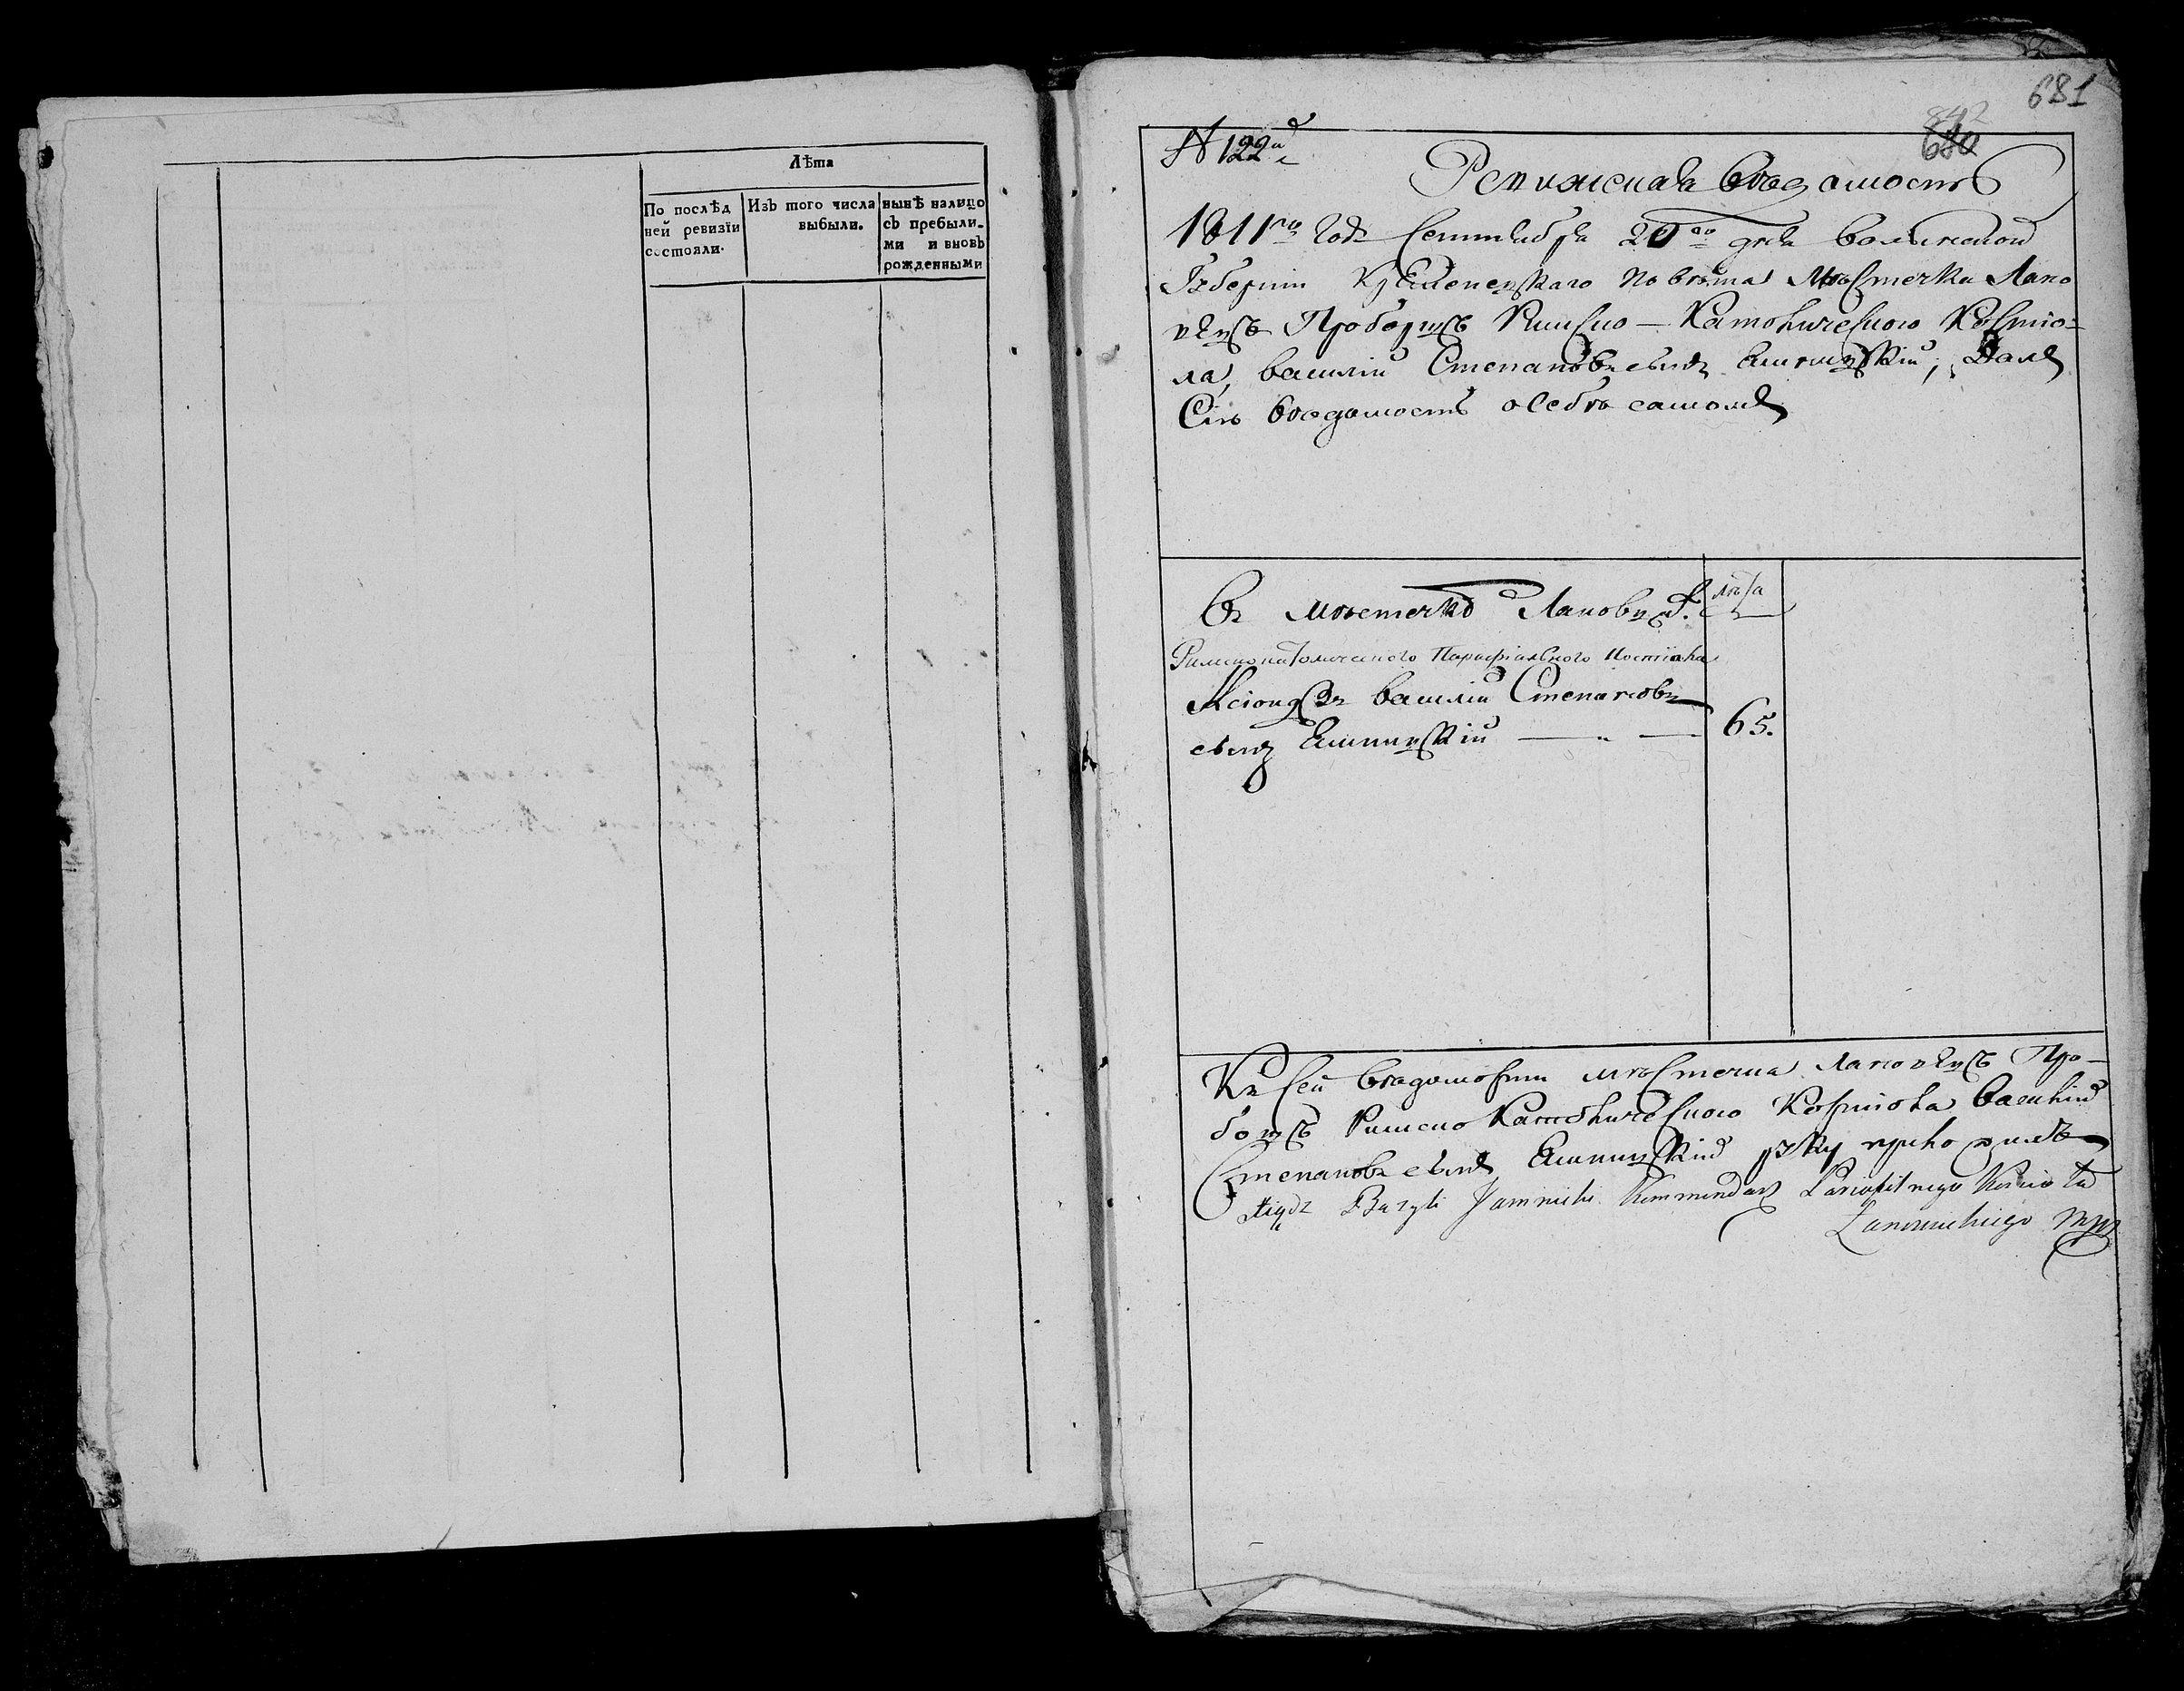 Лѣта
По послѣд
ней ревизіи
состояли.
Изъ того числа
выбыли.
нынѣ налицо
съ прєбылі-
ми и вновь
рожденными
681
842
680
№ 122й
Ревижская вѣдомость
1811го года Сентября 20го дня Волынской
Губерніи Кременецкаго повѣта Мѣстечка Лано
вецъ Пробощъ Римско-Католическаго Костіо-
ла, Василій Степановъ сынъ Ямницкій, Далъ
Сію вѣдомость о себѣ самомъ
Въ мѣстечкѣ Лановцах.
лѣта
Римскокатолического Парафіяльного костіола
Ксіондзъ Василій Степановъ
сынъ Ямницкій
65.
Къ сей вѣдомости мѣстечка Лановецъ Про-
бощъ Римско Католическаго Костіола Василій
Степановъ сынъ Ямницкій руку приложилъ
Xiądz Bazyli Jamnicki Kommendarz Parafialnego Kościoła
Łanowieckiego mp